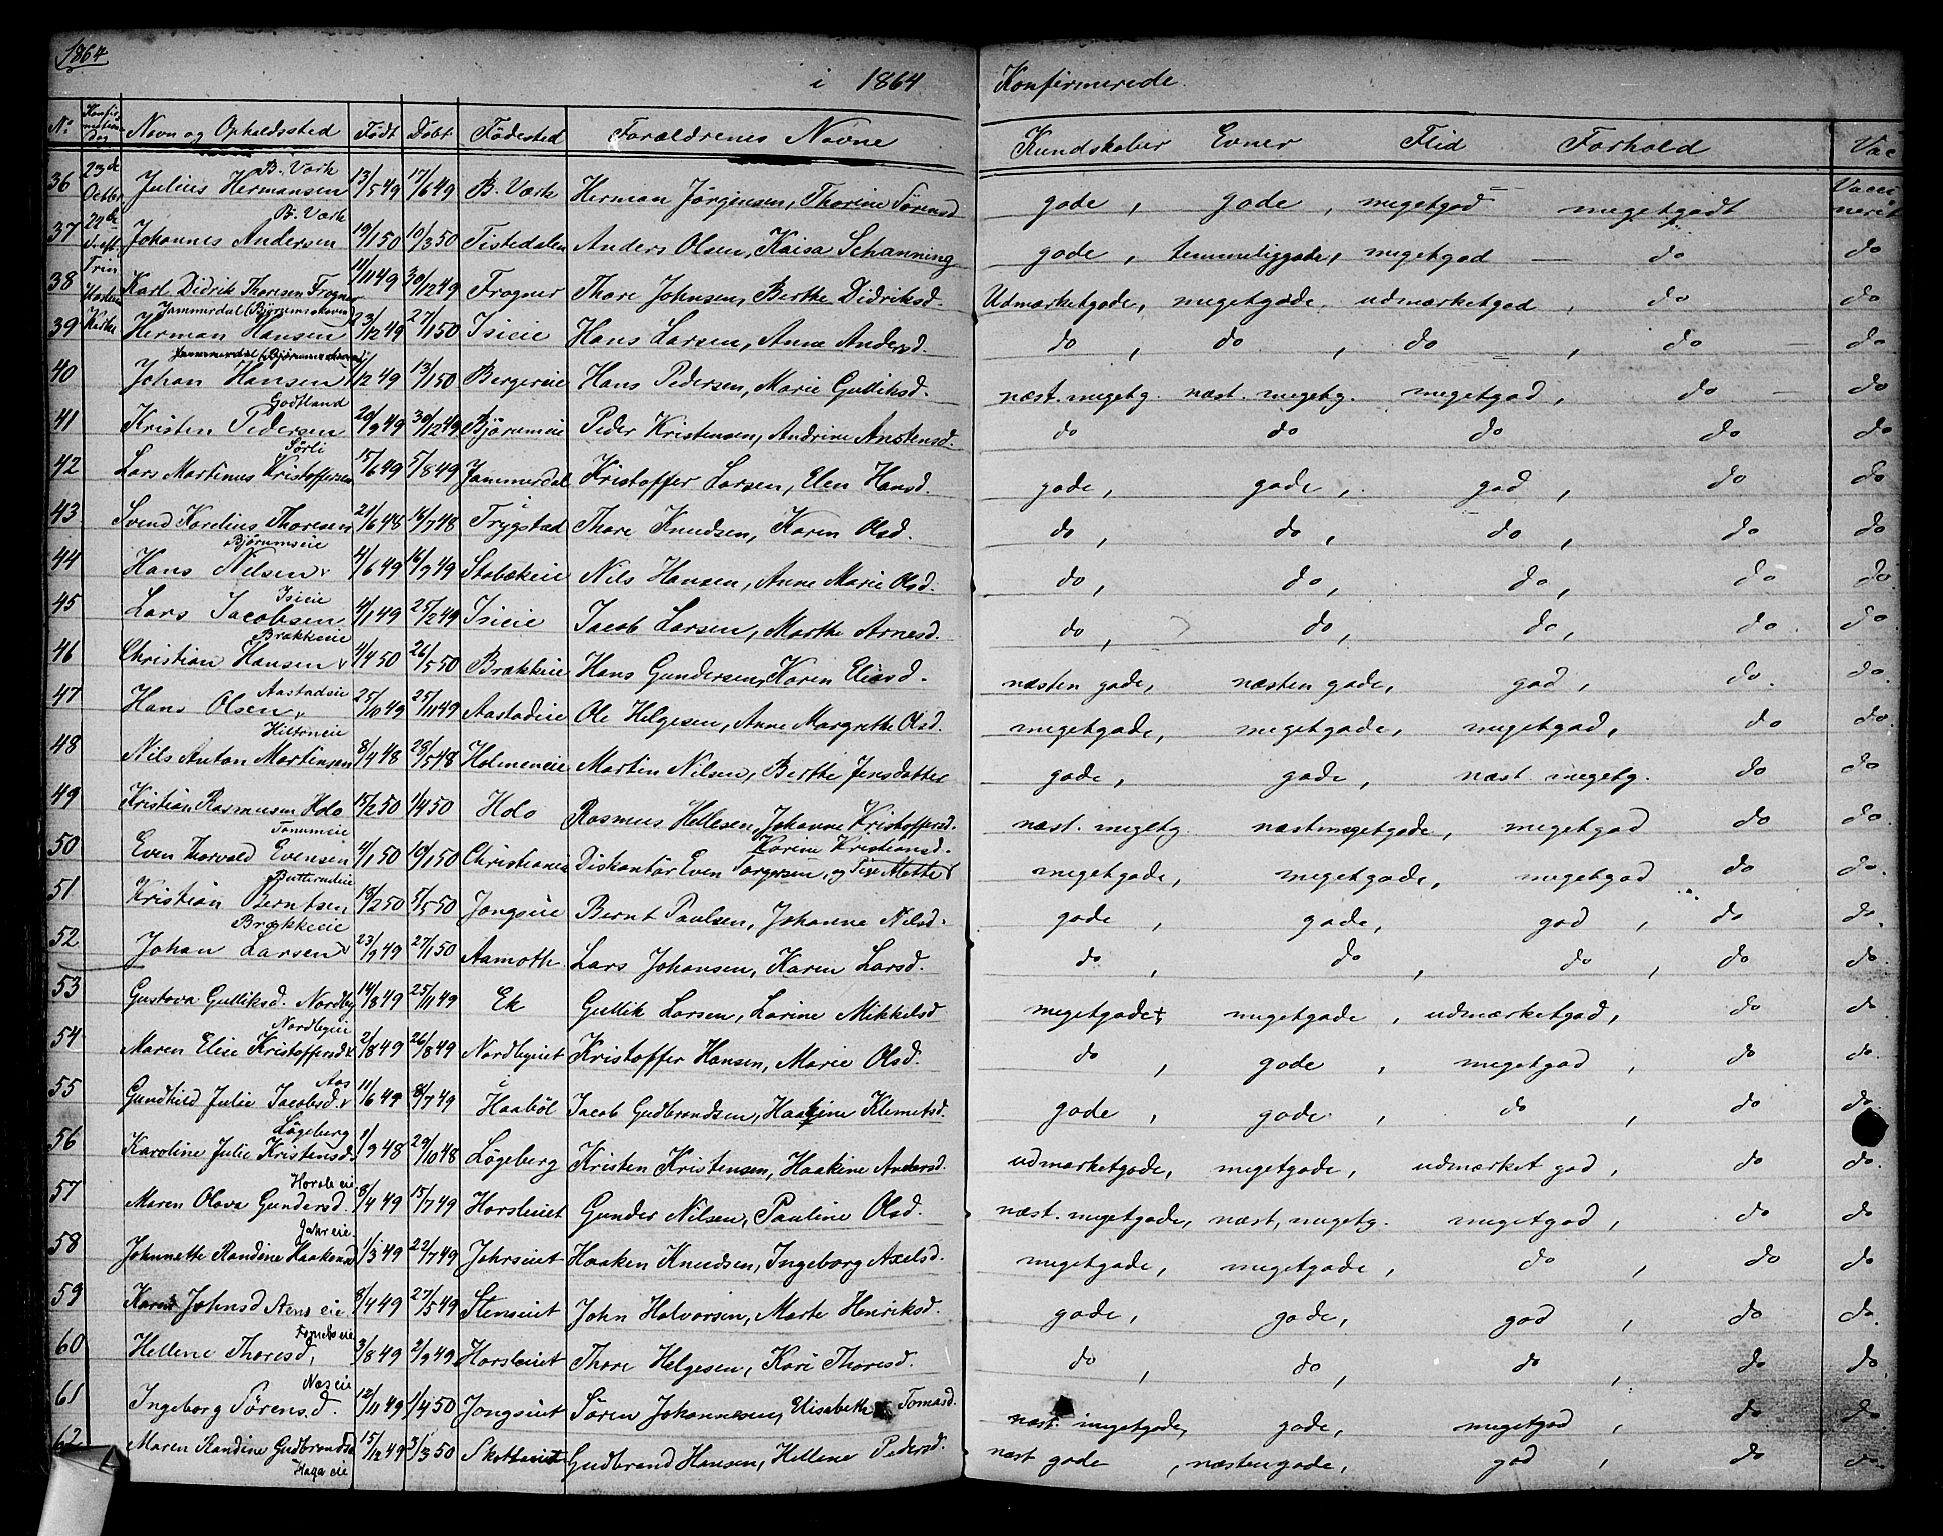 1864
i 1864 Konfirmerede.
No. Konfirmations Dag Navn og Opholdssted Født Døbt Fødested Forældrenes Navne Kundskaber Evner Flid Forhold Vac
36 23d Octbr. Julius Hermansen B. Værk 13/5 49 17/6 49 B. Værk Herman Jörgensen, Thorine Sörensd. gode, gode, megetgod megetgodt Vaccineret
37 22de S. eft. Johannes Andersen B. Værk 19/1 50 10/3 50 Tistedalen Anders Olsen, Kaisa Schanning gode, temmeliggode, megetgod — do do
38 Trin Karl Didrik Thoresen Frogner 11/11 49 30/12 49 Frogner Thore Johnsen, Berthe Didriksd. Udmærketgode, megetgode, udmærketgod, do do
39 Kirke Herman Hansen Jammerdal (Bjørumskoven) 23/12 49 27/1 50 Isieie Hans Larsen, Anne Andersd. do, do, do, do — do
40 Johan Hansen Jammerdal (Bjørumskoven) /12 49 13/1 50 Bergereie Hans Pedersen, Marie Gulliksd. næst. megetg. næst. megetg. megetgod, do — do
41 Kristen Pedersen Godtland 20/9 49 30/12 49 Bjørumeie Peder Kristensen, Andrine Anstensd. do do do do do
42 Lars Martinus Kristoffersen Sørli 15/6 49 5/8 49 Jammerdal Kristoffer Larsen, Elen Hansd. gode, gode, god, do do
43 Svend Karelius Thoresen 21/6 48 16/7 48 Trygstad Thore Knudsen, Karen Olsd. do, do, do, do do
44 Hans Nilsen Bjørumseie 4/6 49 16/9 49 Stabækeie Nils Hansen, Anne Marie Olsd. do, do, do, do do
45 Lars Jacobsen Isieie 4/1 49 25/2 49 Isieie Jacob Larsen, Marthe Arnesd. do, do, do, do. do.
46 Christian Hansen Brækkeie 4/4 50 26/5 50 Brækkeie Hans Gundersen, Karen Eliasd. næsten gode, næsten gode, god, do. do.
47 Hans Olsen Aastadeie 25/10 49 25/11 49 Aastadeie Ole Helgesen, Anne Margrethe Olsd. megetgode, megetgode, megetgod, do do.
48 Nils Anton Martinsen Hiltoneie 8/4 48 28/5 48 Holmeneie Martin Nilsen, Berthe Jensdatter gode, gode, næst. megetg. do do
49 Kristian Rasmusen Holo 15/2 50 1/4 50 Holo Rasmus Hellesen, Johanne Kristoffersd. næst. megetg. næstmegetgode, megetgod do do
50 Even Thorvald Evensen Tanumeie 4/1 50 10/1 50 Christiania Diskantør Even Torgersen, og Karine Kristiansd. megetgode, megetgode, megetgod do do.
51 Kristian Berntsen Butterudeie 18/2 50 5/5 50 Jongseie Bernt Paulsen, Johanne Nilsd. gode, gode, god, do do.
52 Johan Larsen Brækkeeie 23/9 49 27/1 50 Aamoth Lars Johansen, Karen Larsd. do, do, do, do do.
53 Gustava Gulliksd. Nordby 14/8 49 25/11 49 Ek Gullik Larsen, Larine Mikkelsd megetgode, megetgode, udmærketgod, do do
54 Maren Elise Kristoffersd Nordbyeie 2/8 49 26/8 49 Nordbyeiet Kristoffer Hansen, Marie Olsd. do, gode, megetgod, do do.
55 Gundhild Julie Jacobsd. Aas 11/6 49 8/7 49 Haabøl Jacob Gudbrandsen, Haakine Klemetsd. gode, gode, do, do do.
56 Karoline Julie Kristensd. Løgeberg 1/9 48 29/10 48 Løgeberg Kristen Kristensen, Haakine Andersd. udmærketgode, megetgode, udmærket god, do do.
57 Maren Olava Gundersd. Horsleeie 8/4 49 15/7 49 Horsleeiet Gunder Nilsen, Pauline Olsd. næst. megetgode, næst, megetg. megetgod, do do
58 Johnette Randine Haakensd Jahreie. 1/3 49 22/7 49 Jahrseiet Haaken Knudsen, Ingeborg Axelsd. megetgode, megetgode, do, do do
59 Karen Johnsd Stens eie 8/4 49 27/5 49 Stenseiet John Halvorsen, Marte Henriksd. gode, gode, god, do do.
60 Hellene Thoresd, Fornebo eie 3/8 49 2/9 49 Horsleeiet Thore Helgesen, Kari Thoresd. do, do, do, do do
61 Ingeborg Sörensd. Næs eie 12/11 49 1/4 50 Jongseiet Sören Johannesen, Elisabethe Tomasd. næst. megetgode, gode, megetgod, do do
62 Maren Randine Gudbrandsd Haga eie 15/12 49 3/3 50 Skottaeiet Gudbrand Hansen, Hellene Pedersd. næst gode, næstengode, god, do do